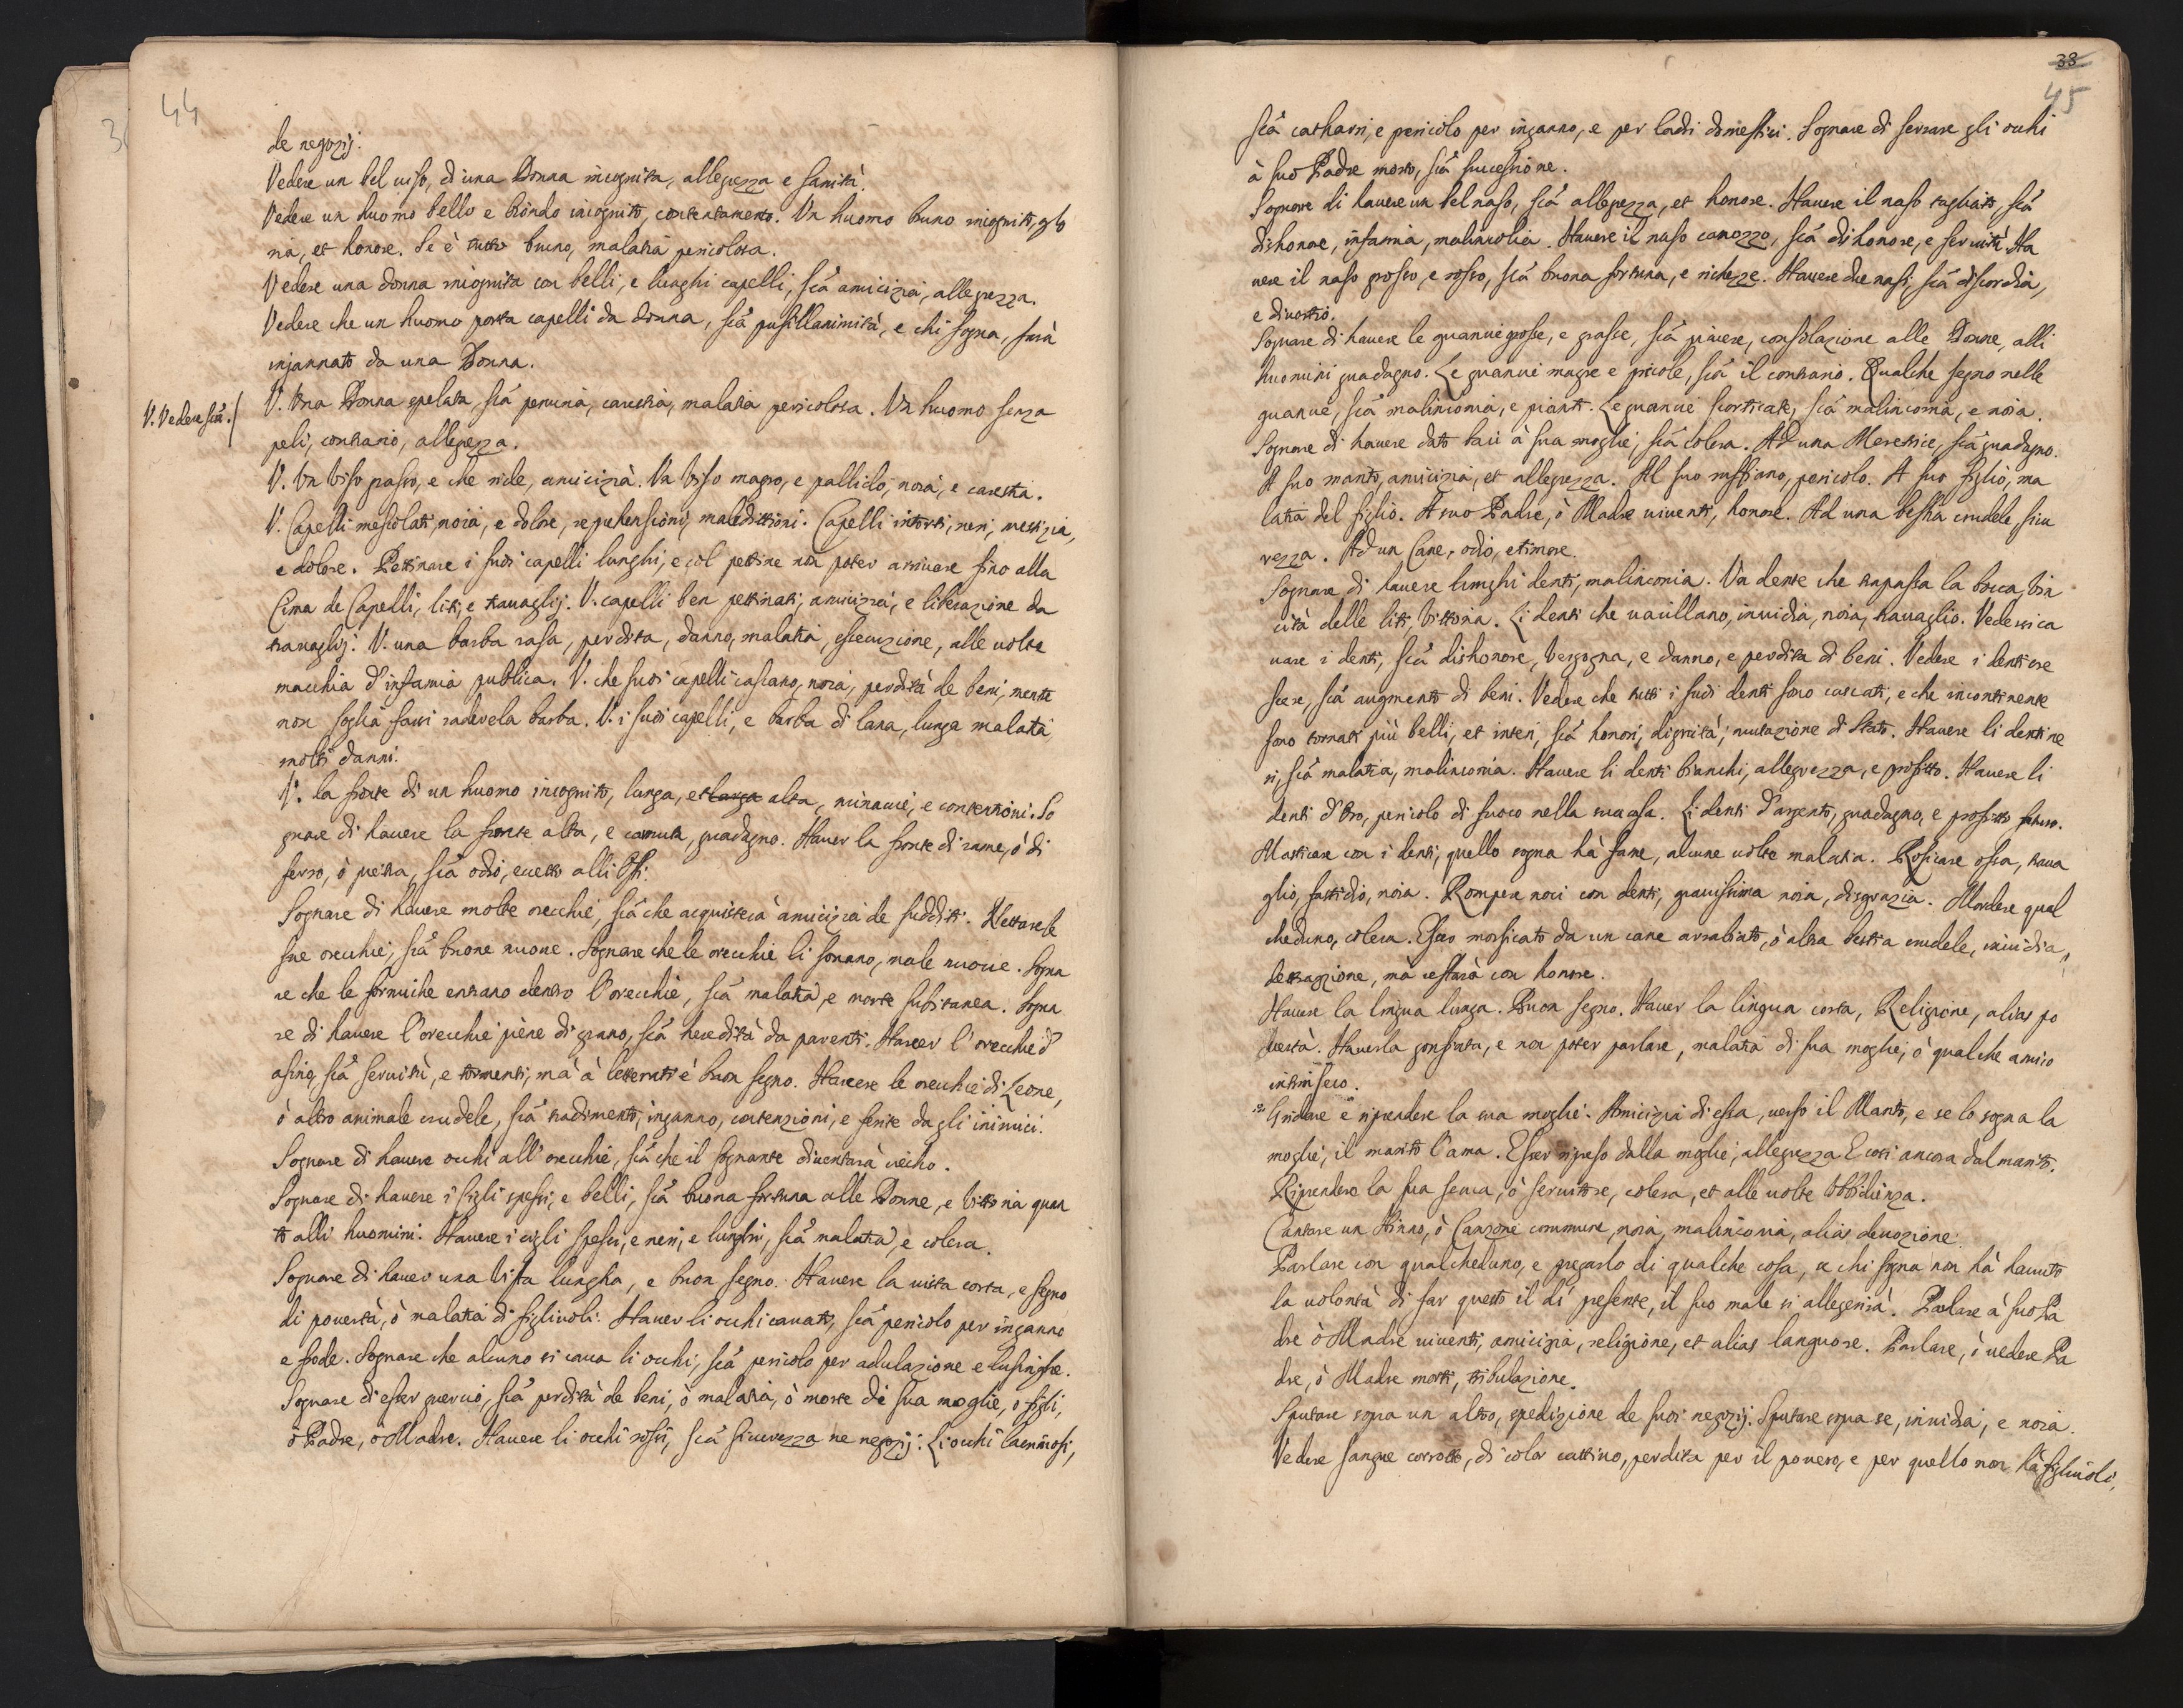 44
de negozij.
Vedere un bel uiso, di una Donna incognita, allegrezza e sanità.
Vedere un huomo bello e biondo incognito, contentamento. Un huomo bruno incognito, glo
ria, et honore. Se è tutto bruno, malatia pericolosa.
Vedere una donna incognita con belli, e lunghi capelli, stà amicizia, allegrezza.
Vedere che un huomo porta capelli da donna, stà pusillanimità, e chi sogna, sarà
ingannato da una Donna.
V. Vedere stà./
V. Una Donna spelata, stà penuria, carestia, malatia pericolosa. Un huomo senza
peli, contrario, allegrezza.
V. Un Viso grasso, e che ride, amicizia. Un Viso magro, e pallido, noia, e carestia.
V. Capelli mescolati, noia, e dolore, reprehensioni, maledittioni. Capelli intorti, neri, mestizia,
e dolore. Pettinare i suoi capelli lunghi, e col pettine non poter arriuare sino alla
Cima de Capelli, liti, e trauaglij. V. capelli ben pettinati, amicizia, e liberazione da
trauaglij. V. una barba rasa, perdita, danno, malatia, essecuzione, alle uolte
macchia d'infamia publica. V. che suoi capelli cascano, noia, perdita de beni, mentre
non soglia farsi radere la barba. V. i suoi capelli, e barba di lana, lunga malatia
molti danni.
V. la fronte di un huomo incognito, lunga, et larga alta, minaccie, e contentioni. So
gnare di hauere la fronte alta, e carnuta, guadagno. Hauer la fronte di rame, ò di
ferro, ò pietra, stà odio, eccetto alli Osti.
Sognare di hauere molte orecchie, stà che acquisterà amicizia de sudditi. Nettarsele
sue orecchie, stà buone nuoue. Sognare che le orecchie li sonano, male nuoue. Sogna
re che le formiche entrano dentro l'orecchie, stà malatia, e morte subitanea. Sogna
re di hauere l'orecchie piene di grano, stà heredità da parenti. Hauer l'orecchie d'
asino, stà seruitù, e tormenti, mà à letterati è buon segno. Hauere le orecchie di Leone,
ò altro animale crudele, stà tradimento, inganno, contenzioni, e ferite dagli inimici.
Sognare di hauere occhi all'orecchie, stà che il sognante diuentarà uecchio.
Sognare di hauere i cigli spessi, e belli, stà buona fortuna alle Donne, e Vittoria quan
to alli huomini. Hauere i cigli spessi, e neri, e lunghi, stà malatia, e colera.
Sognare di hauer una Vista lungha, e buon segno. Hauere la uista corta, e segno
di pouertà, ò malatia di figliuoli. Hauer li occhi cauati, stà pericolo per inganno
e frode. Sognare che alcuno si caua li occhi, stà pericolo per adulazione e lusinghe.
Sognare di esser guercio, stà perdita de beni, ò malatia, ò morte di sua moglie, o figli,
ò Padre, ò Madre. Hauere li occhi rossi, stà sicurezza ne negozij. Li occhi lacrimosi,
38
45
stà catharri, e pericolo per inganno, e per ladri domestici. Sognare di serrare gli occhi
à suo Padre morto, stà successione.
Sognare di hauere un bel naso, stà allegrezza, et honore. Hauere il naso tagliato, stà
dishonore, infamia, malincolia. Hauere il naso camozzo, stà dishonore, e seruitù. Ha
uere il naso grosso, e rosso, stà buona fortuna, e richezze. Hauere due nasi, stà discordia,
e diuortio.
Sognare di hauere le guancie grosse, e grasse, stà piacere, consolazione alle Donne, alli
huomini guadagno. Le guancie magre e picole, stà il contrario. Qualche segno nelle
guancie, stà malinconia, e pianti. Le guancie scorticate, stà malinconia, e noia.
Sognare di hauere dato baci à sua moglie, stà colera. Ad una Meretrice, stà guadagno.
A suo marito, amicizia, et allegrezza. Al suo ruffiano, pericolo. A suo figlio, ma
latia del figlio. A suo Padre, ò Madre uiuenti, honore. Ad una bestia crudele, sicu
rezza. Ad un Cane, odio, e timore.
Sognare di hauere lunghi denti, malinconia. Un dente che trapassa la bocca, Vin
cità delle liti, Vittoria. Li denti che uacillano, inuidia, noia, trauaglio. Vedersi ca
uare i denti, stà dishonore, Vergogna, e danno, e perdita di beni. Vedere i denti cre
scere, stà augmento di beni. Vedere che tutti i suoi denti sono cascati, e che incontinente
sono tornati più belli, et interi, stà honori, dignità, mutazione di Stato. Hauere li denti ne
ri, stà malatia, malinconia. Hauere li denti bianchi, allegrezza, e profitto. Hauere li
denti d'Oro, pericolo di fuoco nella sua casa. Li denti d'argento, guadagno, e profitto futuro.
Masticare con i denti, quello sogna hà fame, alcune uolte malatia. Rosicare ossa, traua
glio, fastidio, noia. Rompere noci con denti, grauissima noia, disgrazia. Mordere qual
cheduno, colera. Esser morsicato da un cane arrabiato, ò altra bestia crudele, inuidia,
detrazione, mà restarà con honore.
Hauere la lingua lunga. Buon segno. Hauer la lingua corta, Religione, alias po
uertà. Hauerla gonfiata, e non poter parlare, malatia di sua moglie, ò qualche amico
intrinseco.
Gridare e riprendere la sua moglie. Amicizia di essa, uerso il Marito, e se lo sogna la
moglie, il marito l'ama. Esser ripreso dalla moglie, allegrezza. E così ancora dal marito.
Riprendere la sua serua, ò seruitore, colera, et alle uolte Obbidienza.
Cantare un Hinno, ò Canzone commune, noia, malinconia, alias deuozione.
Parlare con qualcheduno, e pregarlo di qualche cosa, se chi sogna non hà hauuto
la uolontà di far questo il dì presente, il suo male si allegerirà. Parlare à suo Pa
dre ò Madre uiuenti, amicizia, religione, et alias languore. Parlare, ò uedere Pa
dre, ò Madre morti, tribulazione.
Sputare sopra un altro, spedizione de suoi negozij. Sputare sopra se, inuidia, e noia.
Vedere sangue corrotto, di color cattiuo, perdita per il pouero, e per quello non hà figliuoli,